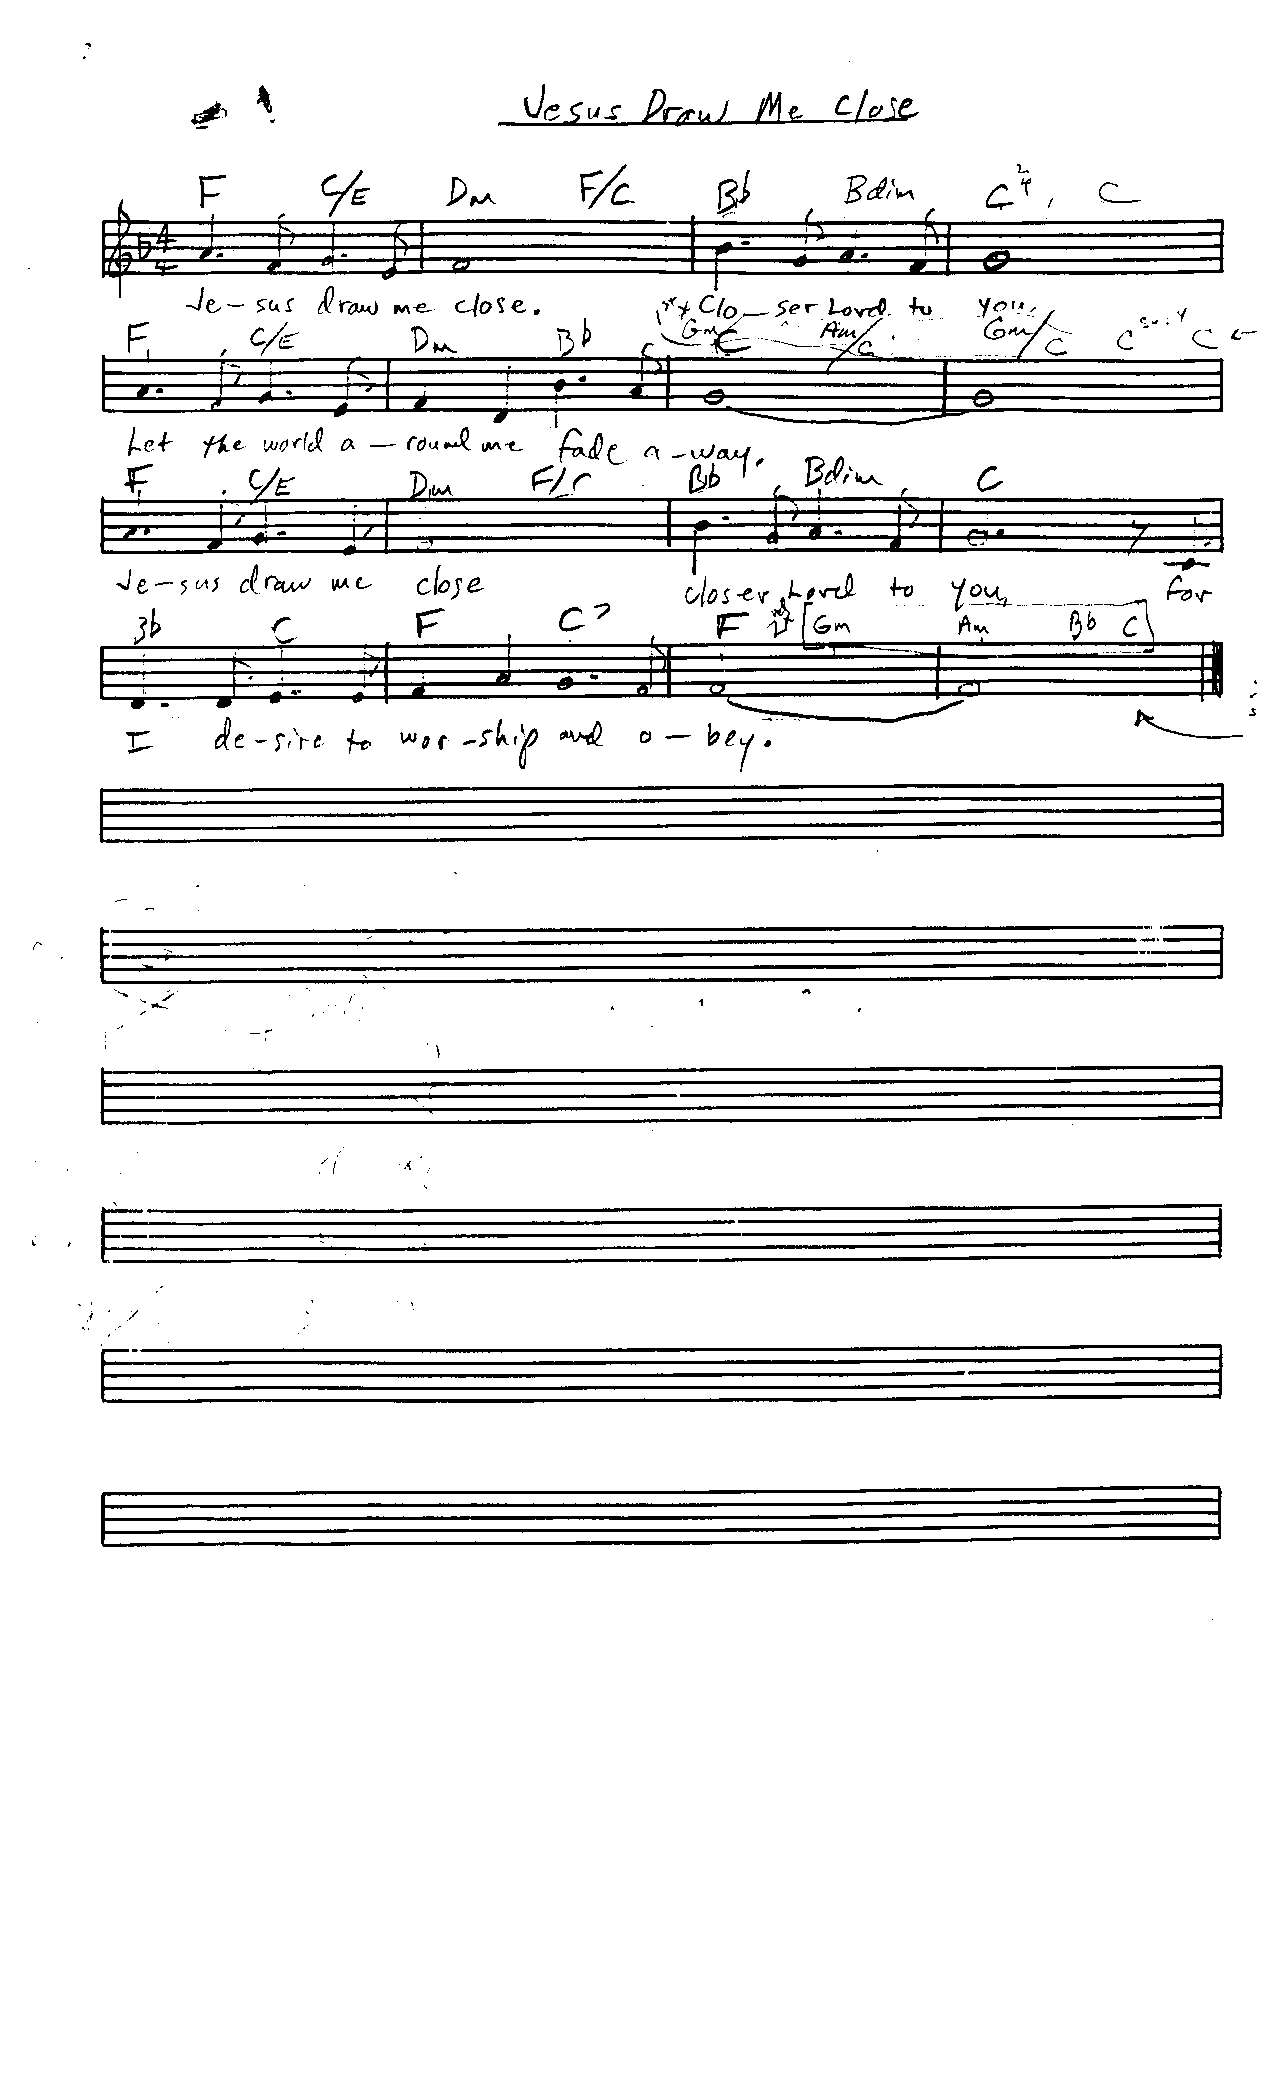 Jesus Draw Me Close
F C/E Dm F/C Bb Bdim C C
4
4
Je-sus draw me close. Clo-ser Lord to you.
Gm/ Am/C Gm/C
F C/E Dm Bb C Csus4 C
Let the world a-round me fade a-way.
F C/E Dm F/C Bb Bdim C
Je-sus draw me close closer Lord to you, for
Bb C F C7 F Gm Am Bb C
I de-sire to wor-ship and o-bey.